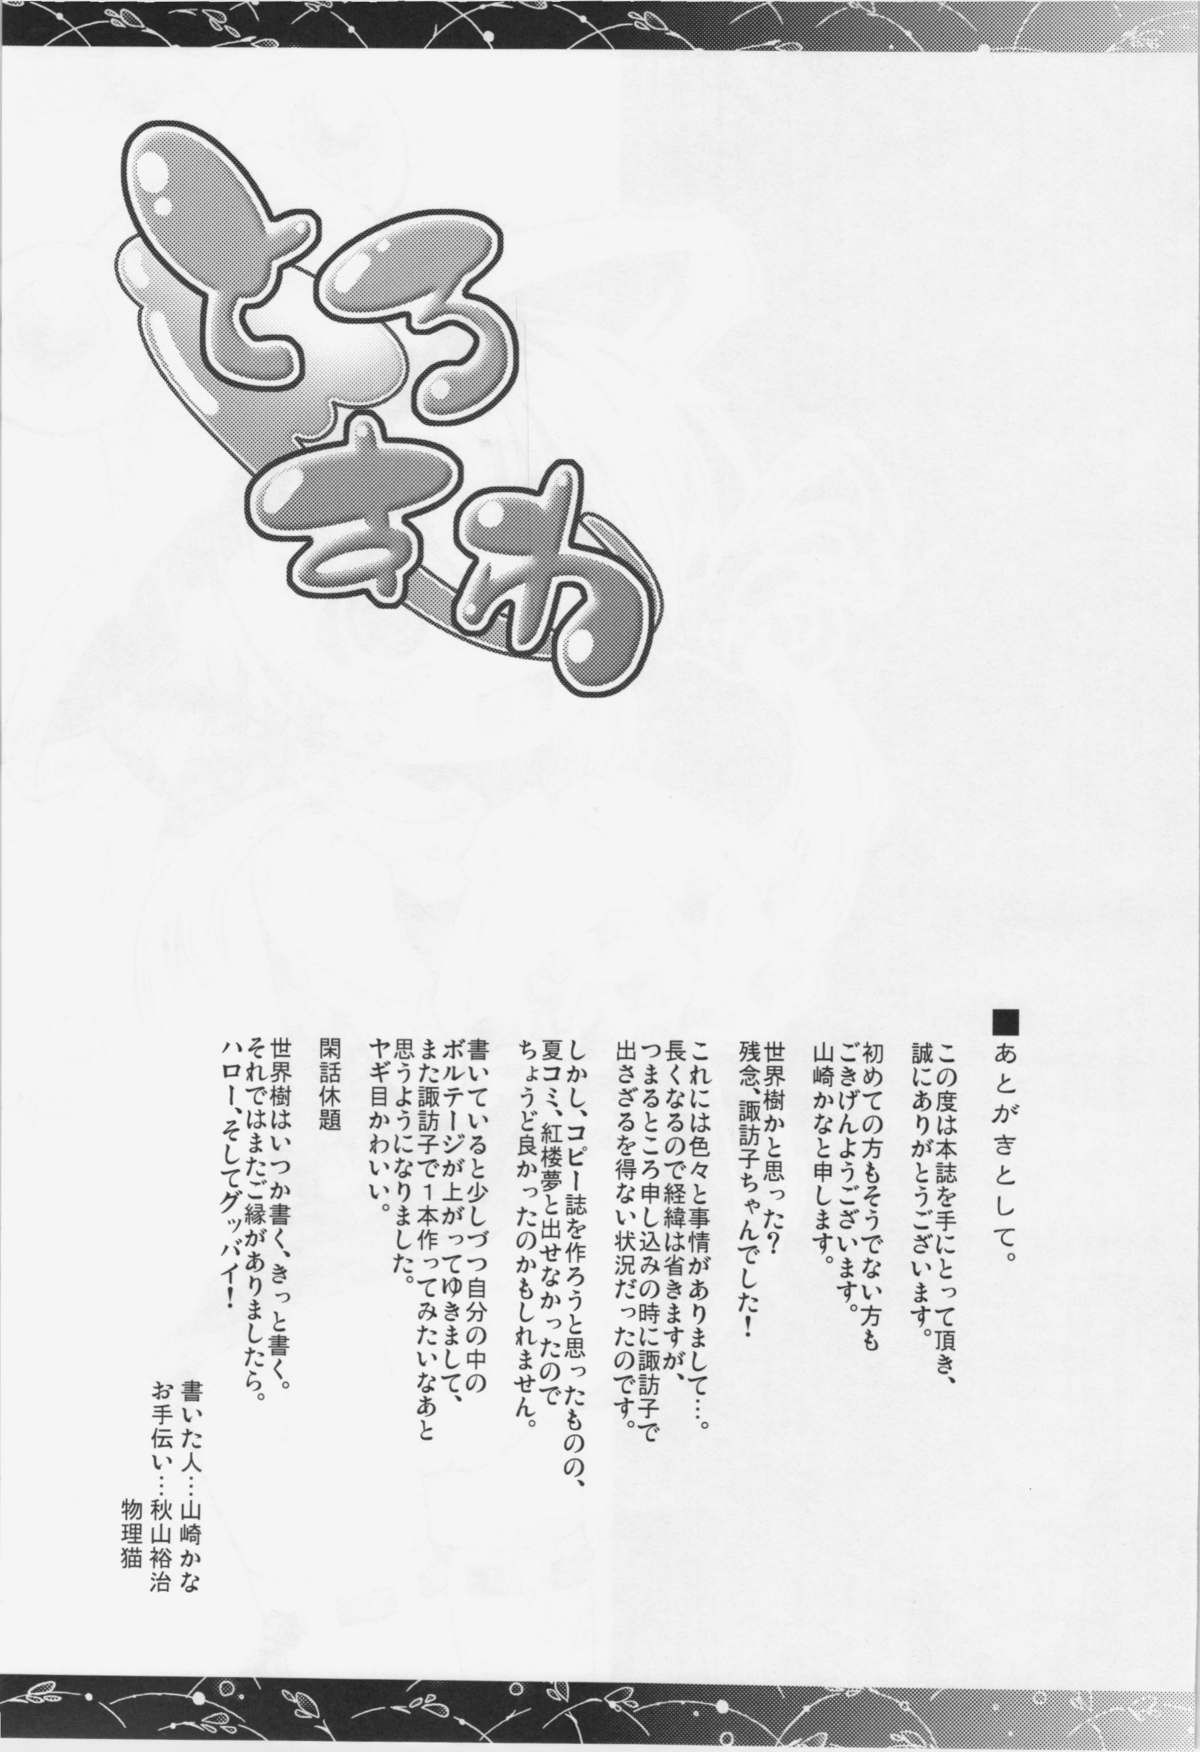 とろ
まわ
■あとがきとして。
この度は本誌を手にとって頂き、
誠にありがとうございます。
初めての方もそうでない方も
ごきげんようございます。
山崎かなと申します。
世界樹かと思った?
残念、諏訪子ちゃんでした!
これには色々と事情がありまして…。
長くなるので経緯は省きますが、
つまるところ申し込みの時に諏訪子で
出さざるを得ない状況だったのです。
しかし、コピー誌を作ろうと思ったものの、
夏コミ、紅楼夢と出せなかったので
ちょうど良かったのかもしれません。
書いていると少しづつ自分の中の
ボルテージが上がってゆきまして、
また諏訪子で1本作ってみたいなあと
思うようになりました。
ヤギ目かわいい。
閑話休題
世界樹はいつか書く、きっと書く。
それではまたご縁がありましたら。
ハロー、そしてグッバイ!
書いた人…山崎かな
お手伝い…秋山裕治
物理猫